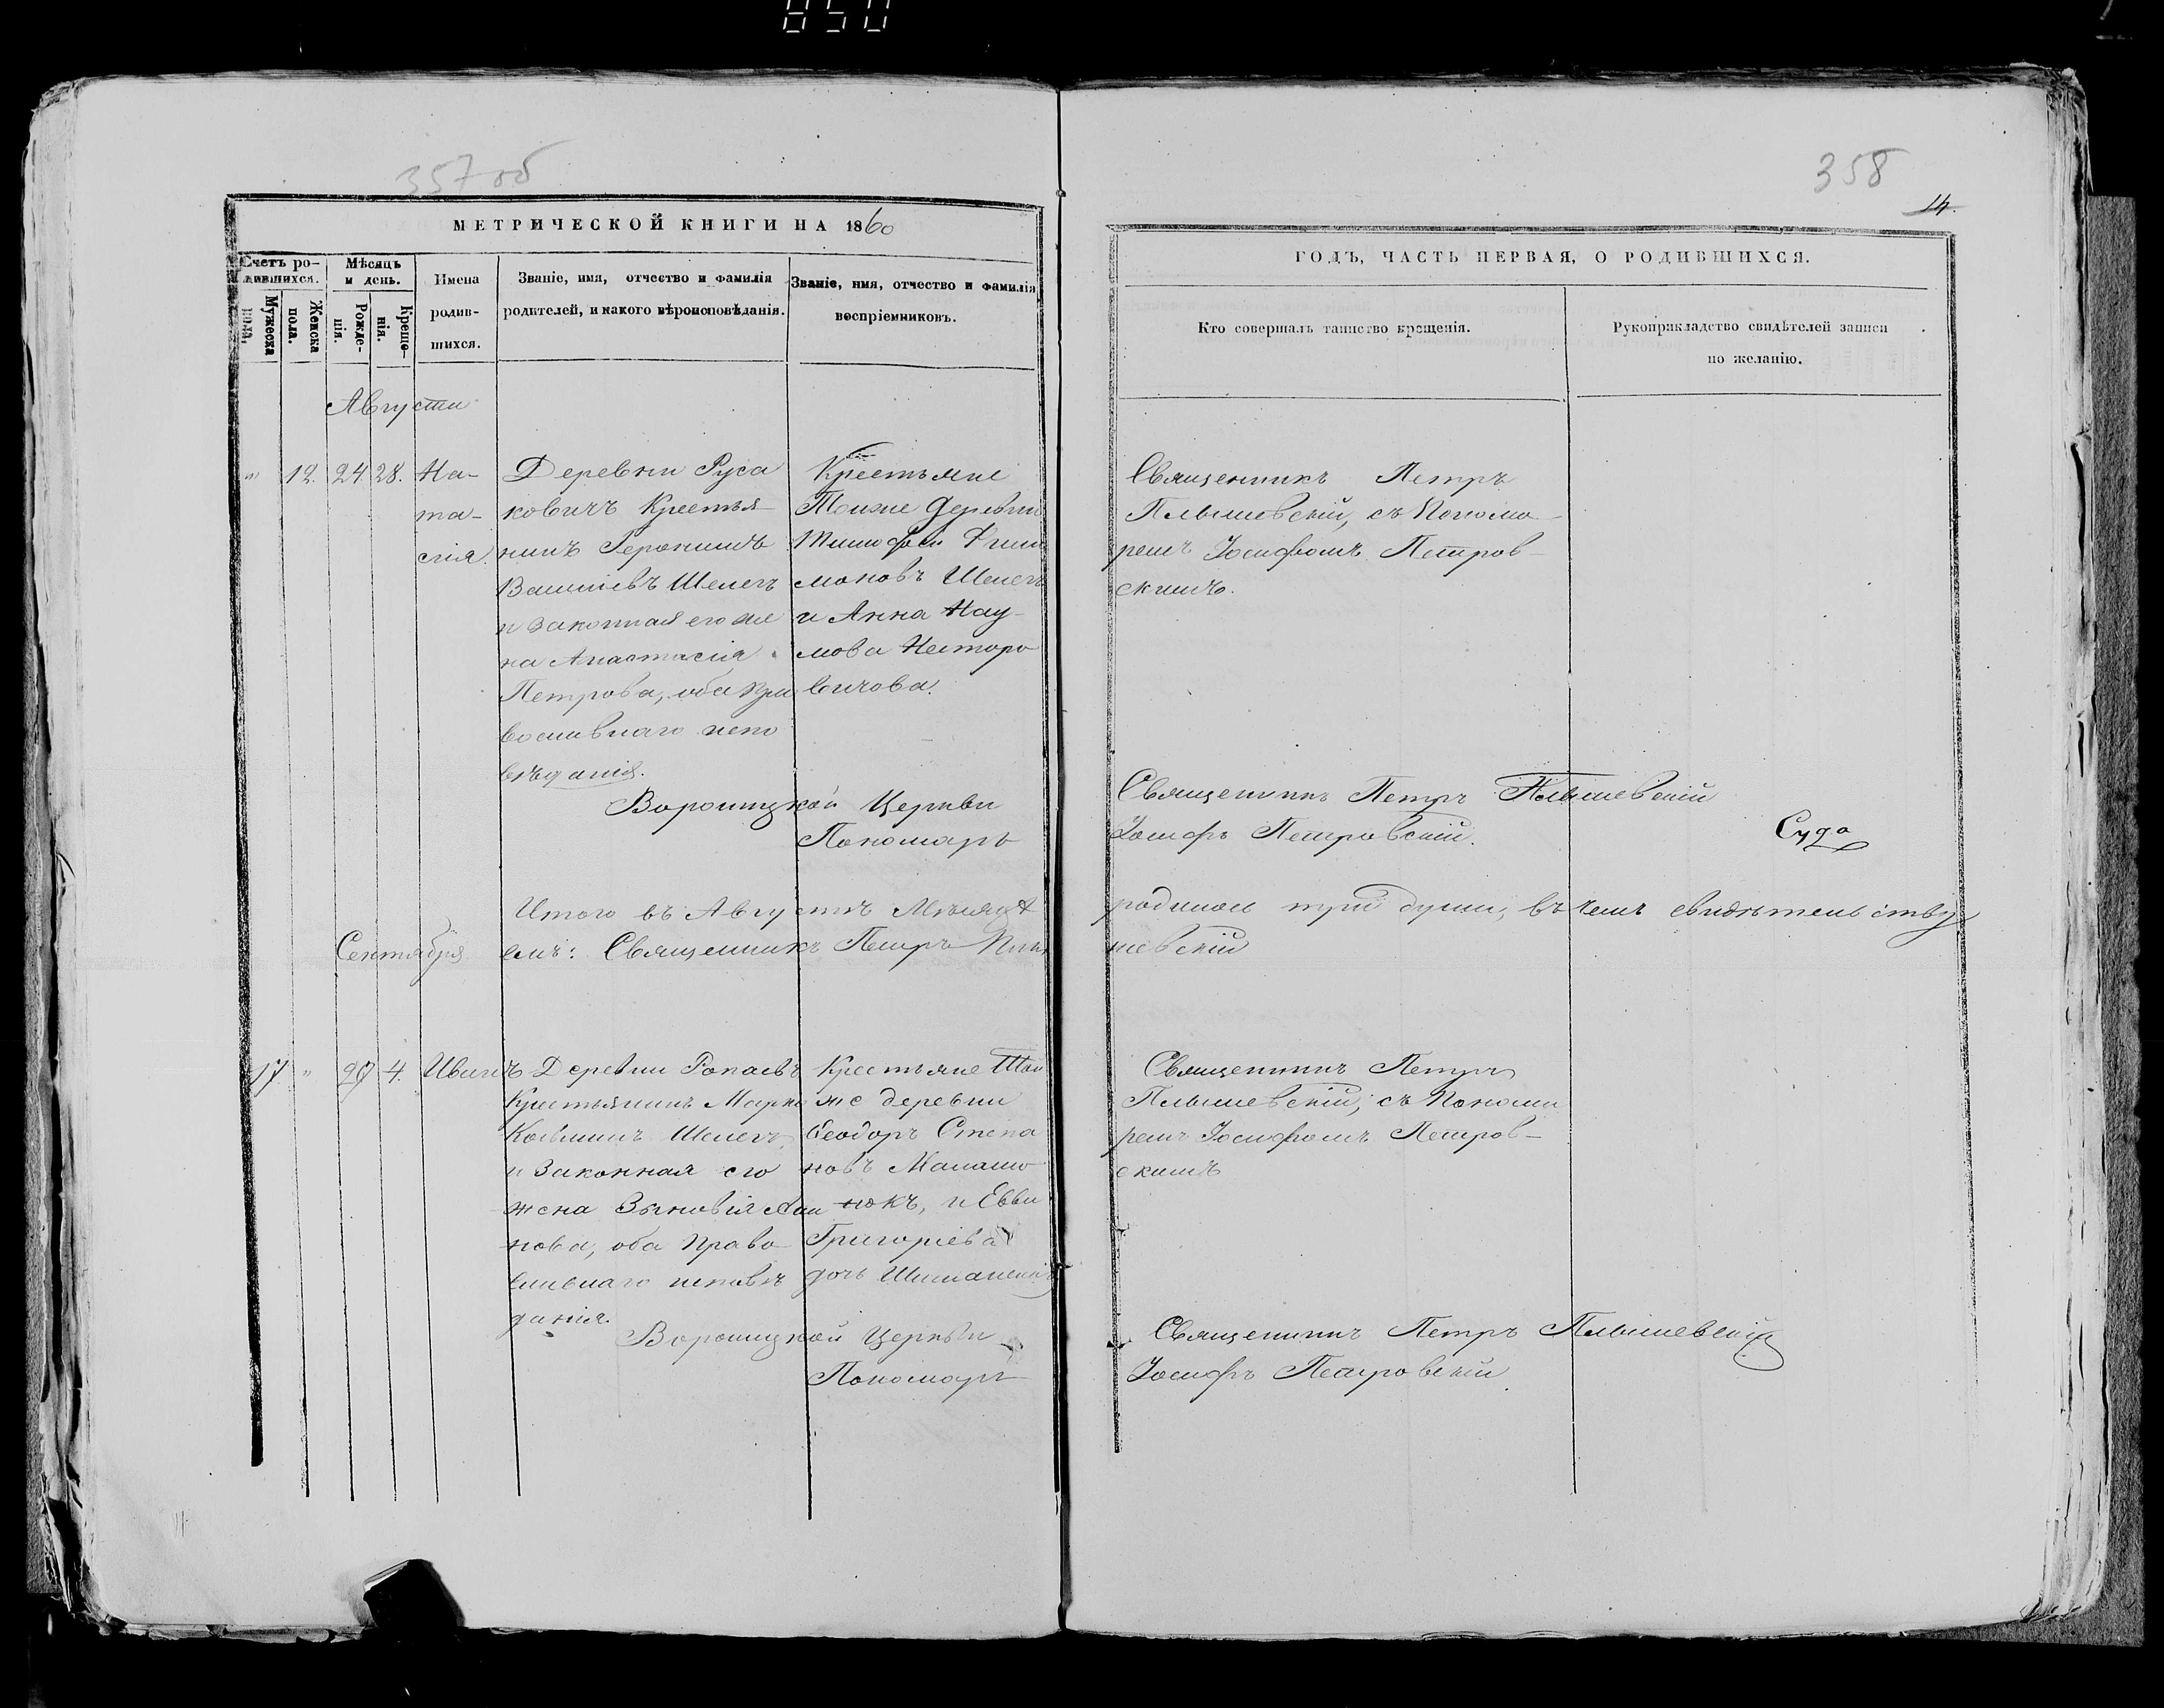 850
357 об
МЕТРИЧЕСКОЙ КНИГИ НА 1860
Счетъ ро-
дившихся.
Мѣсяцъ
и день.
Мужеска
пола,
Женска
пола.
Рожде-
нія.
Креще-
нія.
Имена
родив-
шихся.
Званіе, имя, отчество и фамилія
родителей, и какого вѣроисповѣданія.
Званіе, имя, отчество и фамилія
воспріемниковъ.
Августа
" 12. 24 28.
На-
та-
сія.
Деревни Руса
ковичъ Крестья-
нинъ Геронимъ
Шелегъ
и законная его же
на Анастасія
Петрова, оба пра
вославнаго испо
вѣданія.
Крестьяне
Тойже деревни
Тимофей
моновъ Шелегъ
и Анна Нау-
мова Несторо
вичова.
Ворониц­кой Церкви
Пономарь
Итого въ Августѣ Мѣсяцѣ
Сентября
емъ: Священникъ Петръ
17 " 29 4. Иванъ
Деревни
Крестьянинъ Марко
Шелегъ
и Законная его
жена Зѣновія
нова, оба Право
славнаго исповѣ
данія.
Крестьяне Той
же деревни
Ѳеодоръ Степа
новъ
нокъ, и Евва
Григоріева
дочь
Вороницкой Церкви
Пономарь
358
14.
ГОДЪ, ЧАСТЬ ПЕРВАЯ, О РОДИВШИХСЯ.
Кто совершалъ таинство крещенія.
Рукоприкладство свидѣтелей записи
по желанію.
Священникъ Петръ
Плышевскій, съ Понома-
ремъ Іосифомъ Петров-
скимъ.
Священникъ Петръ Плышевскій
Іосифъ Петровскій.
Суда
родилось три души, въ чемъ свидѣтельству
шевскій
Священникъ Петръ
Плышевскій, съ Понома
ремъ Іосифомъ Петров-
скимъ
Священникъ Петръ Плышевскій
Іосифъ Петровскій.